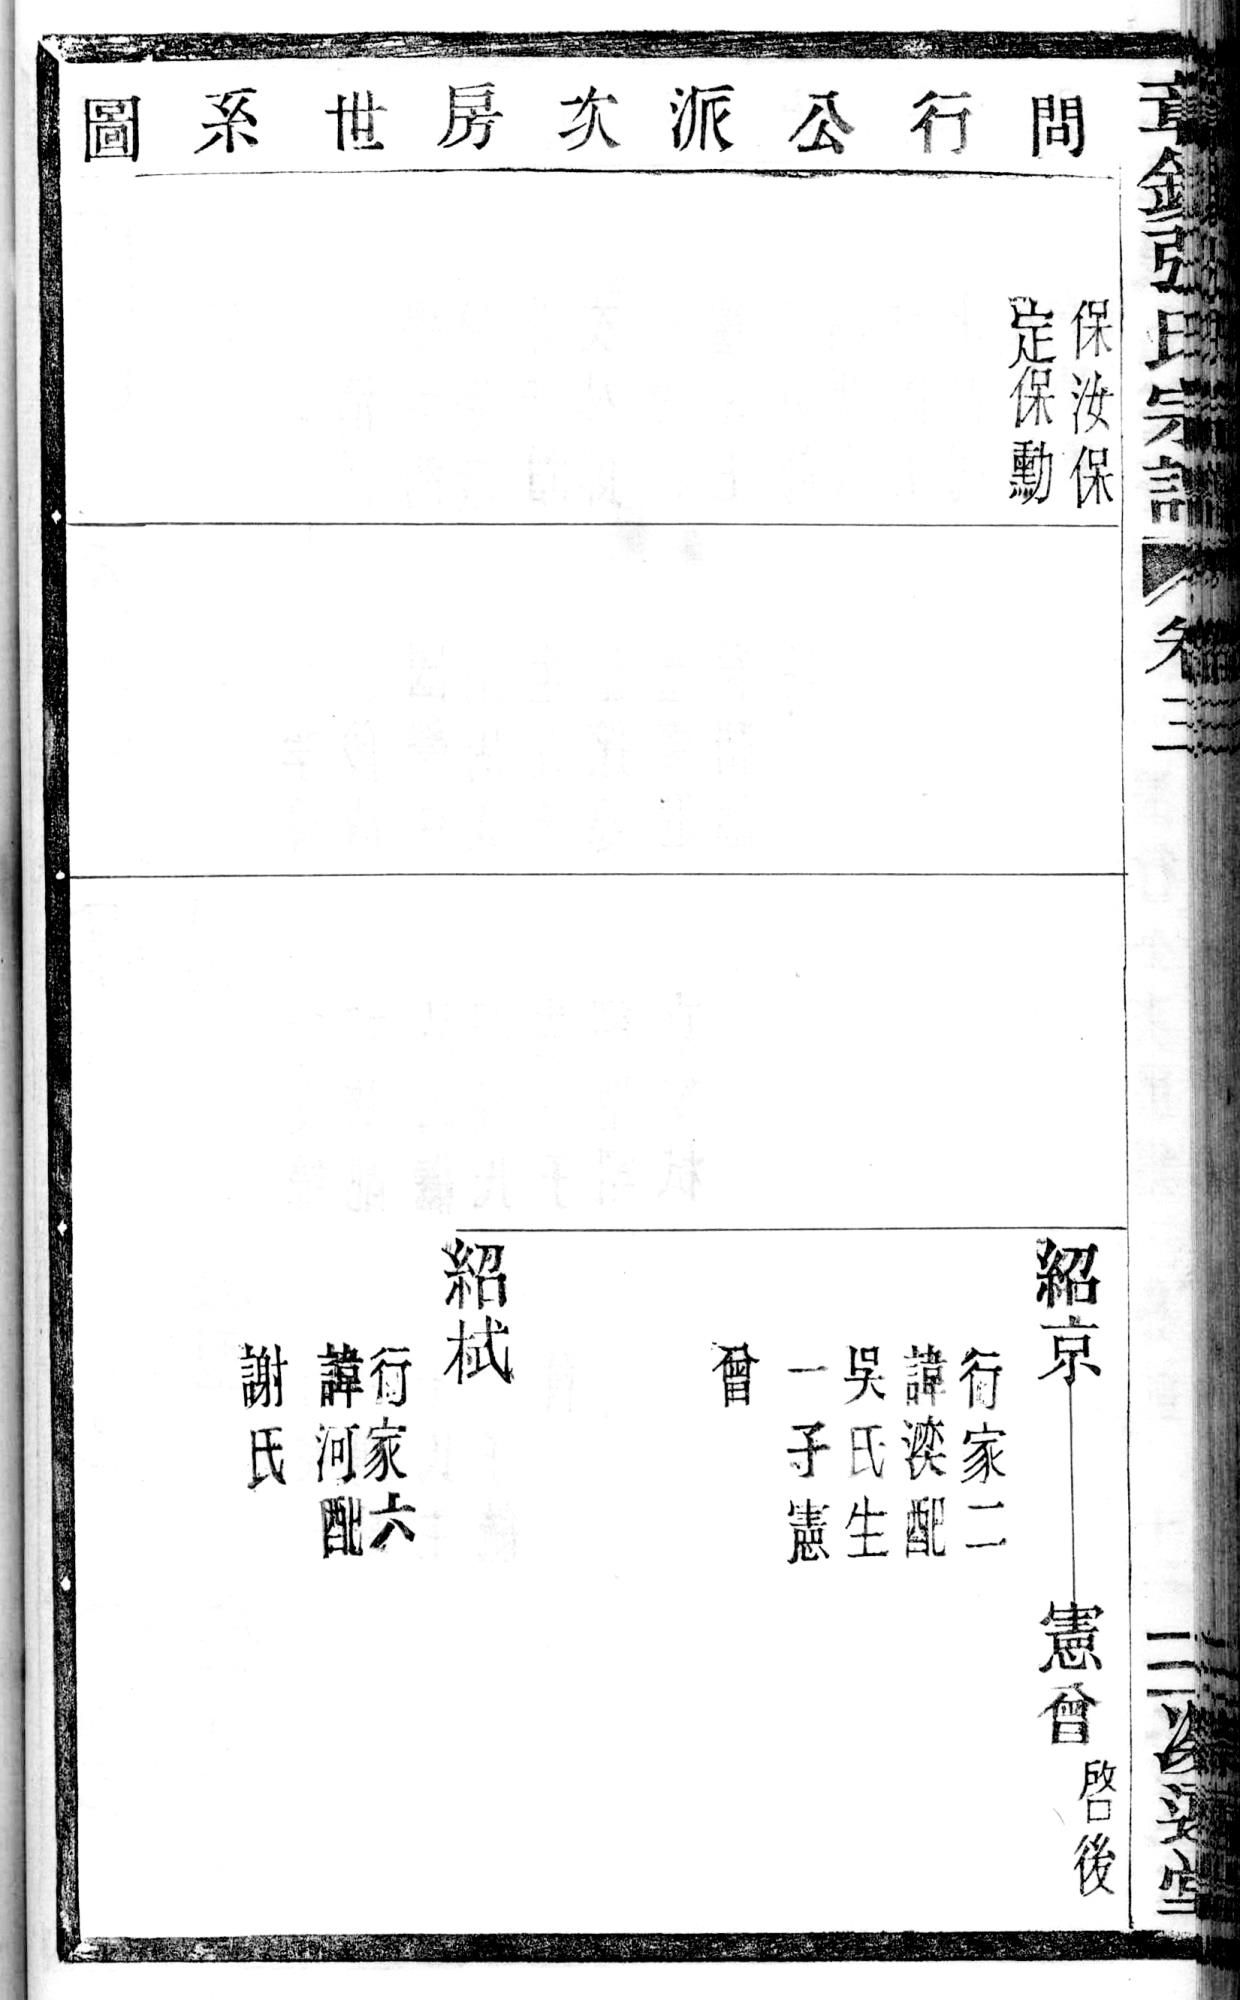 問行公派次房世系圖
保汝保
定保勳
紹京
憲曾
啓後
行家二
諱湙配
吳氏生
一子憲
曾
紹栻
行家六
諱河配
謝氏
張氏宗譜
卷三